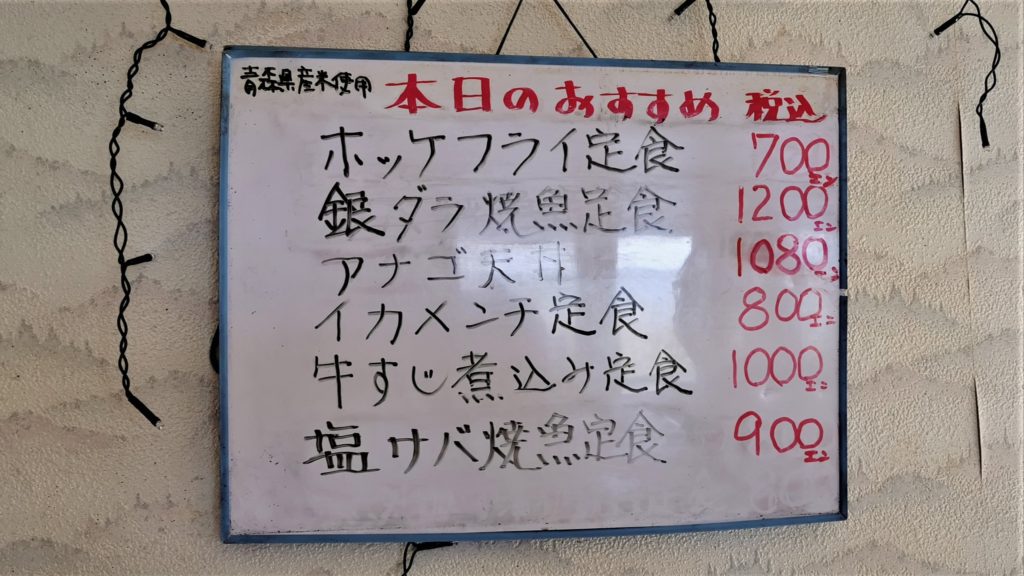 青森県産米使用 本日のおすすめ 税込
ホッケフライ定食 700エン
銀ダラ焼魚定食 1200エン
アナゴ天丼 1080エン
イカメンチ定食 800エン
牛すじ煮込み定食 1000エン
塩サバ焼魚定食 900エン